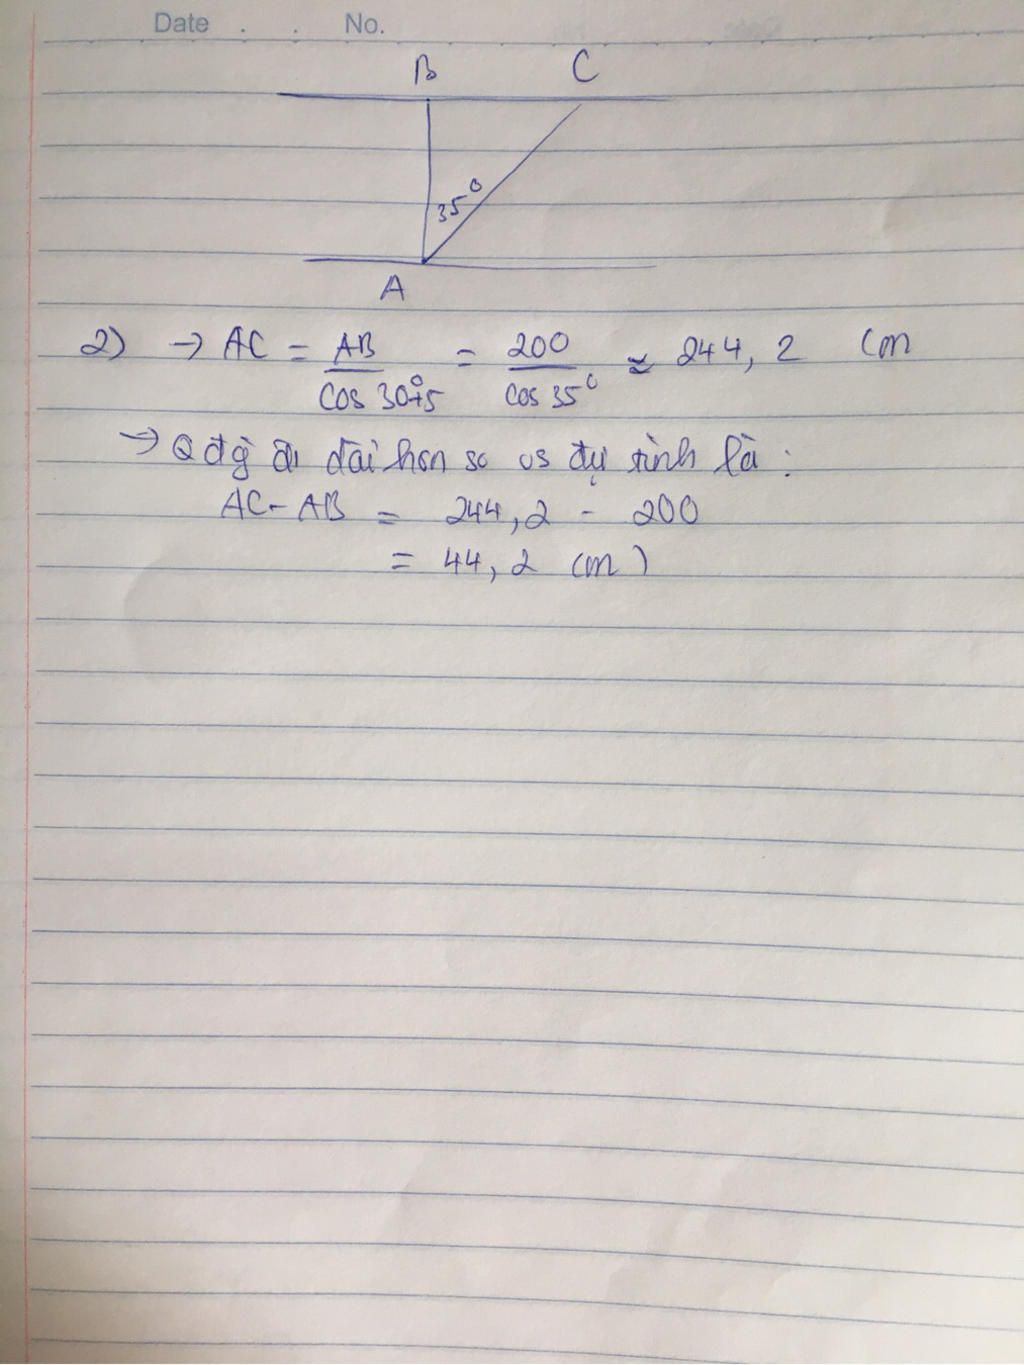 Date . . No.
B C
35°
A
2) → AC = AB / cos 35° = 200 / cos 35° ≈ 244,2 (m
→ Q đg đi dài hơn so vs dự tính là :
AC - AB = 244,2 - 200
= 44,2 (m)